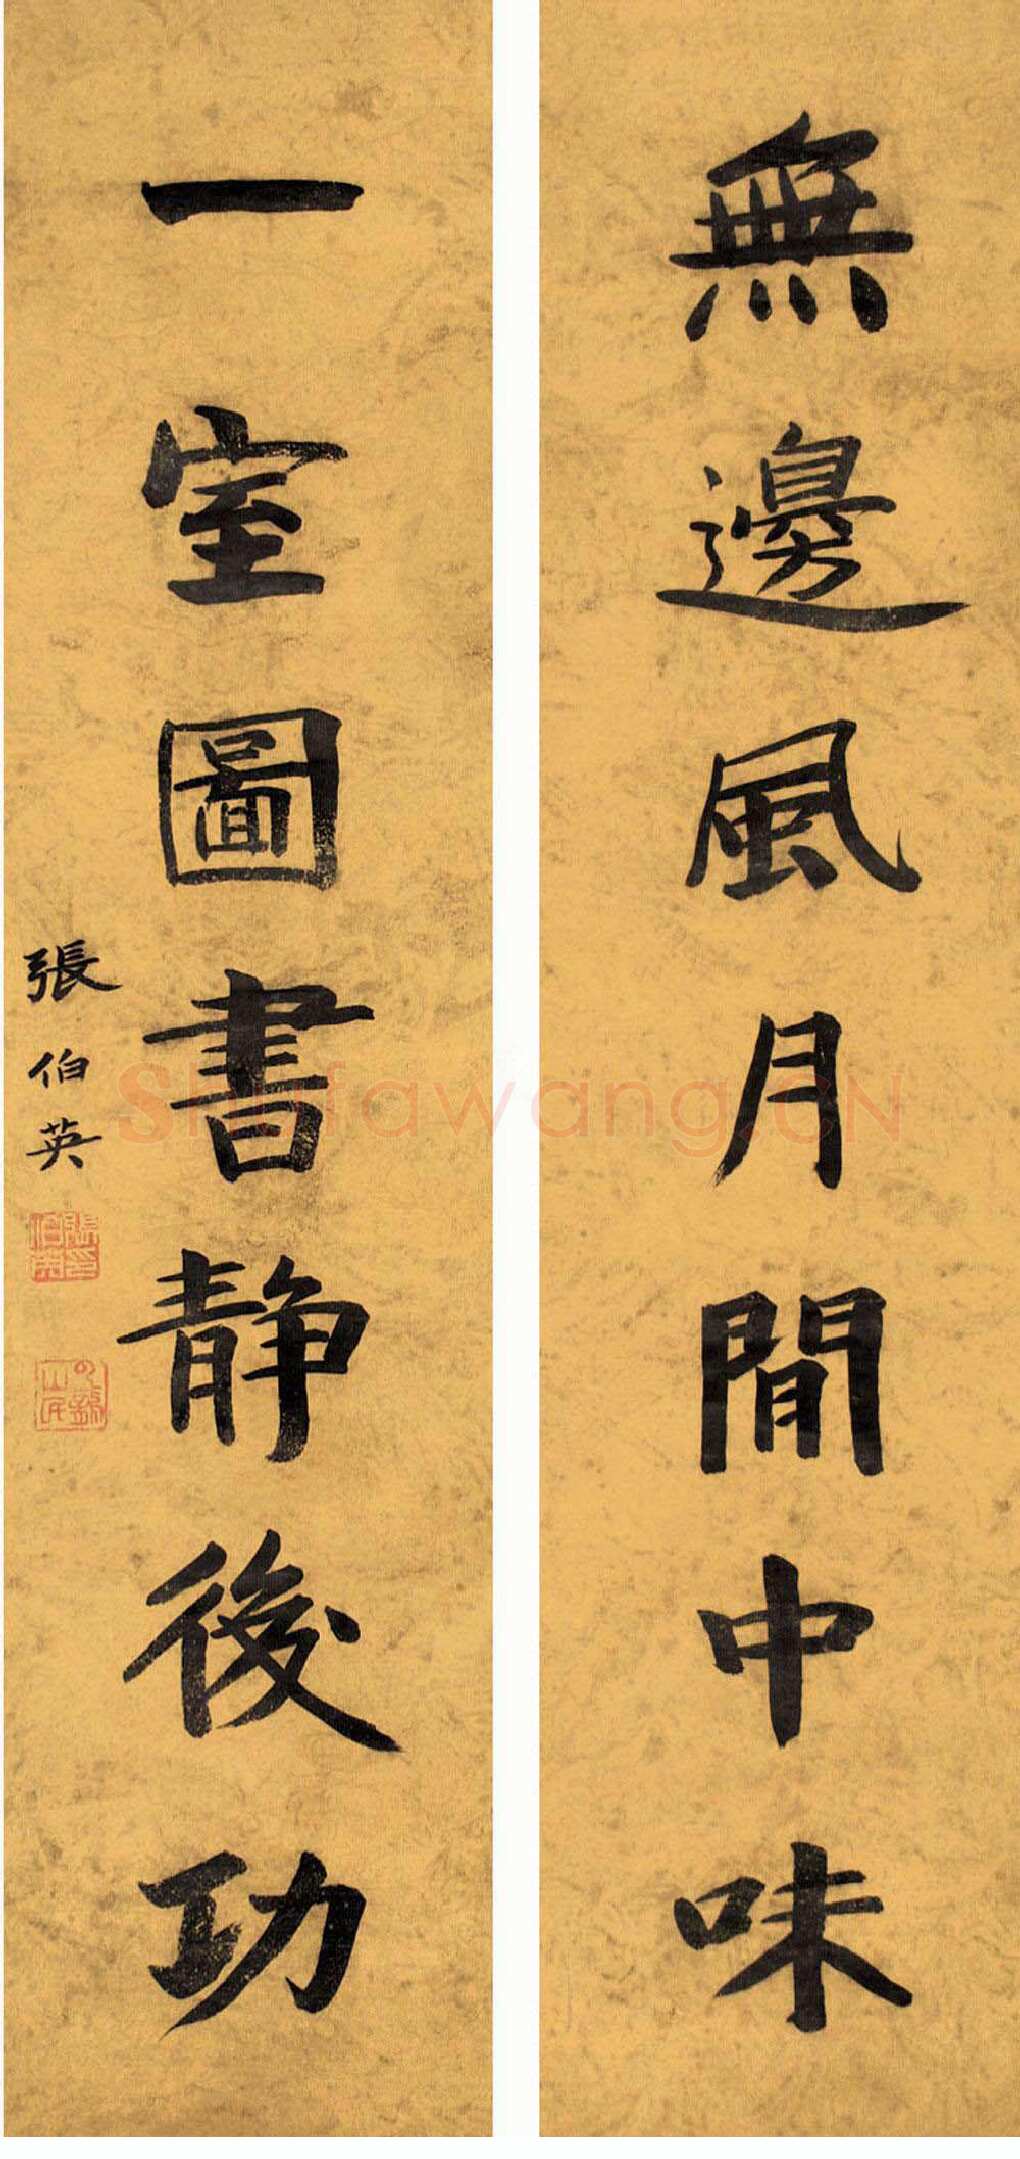 無邊風月閒中味
一室圖書静後功
張伯英
Shufawang.CN